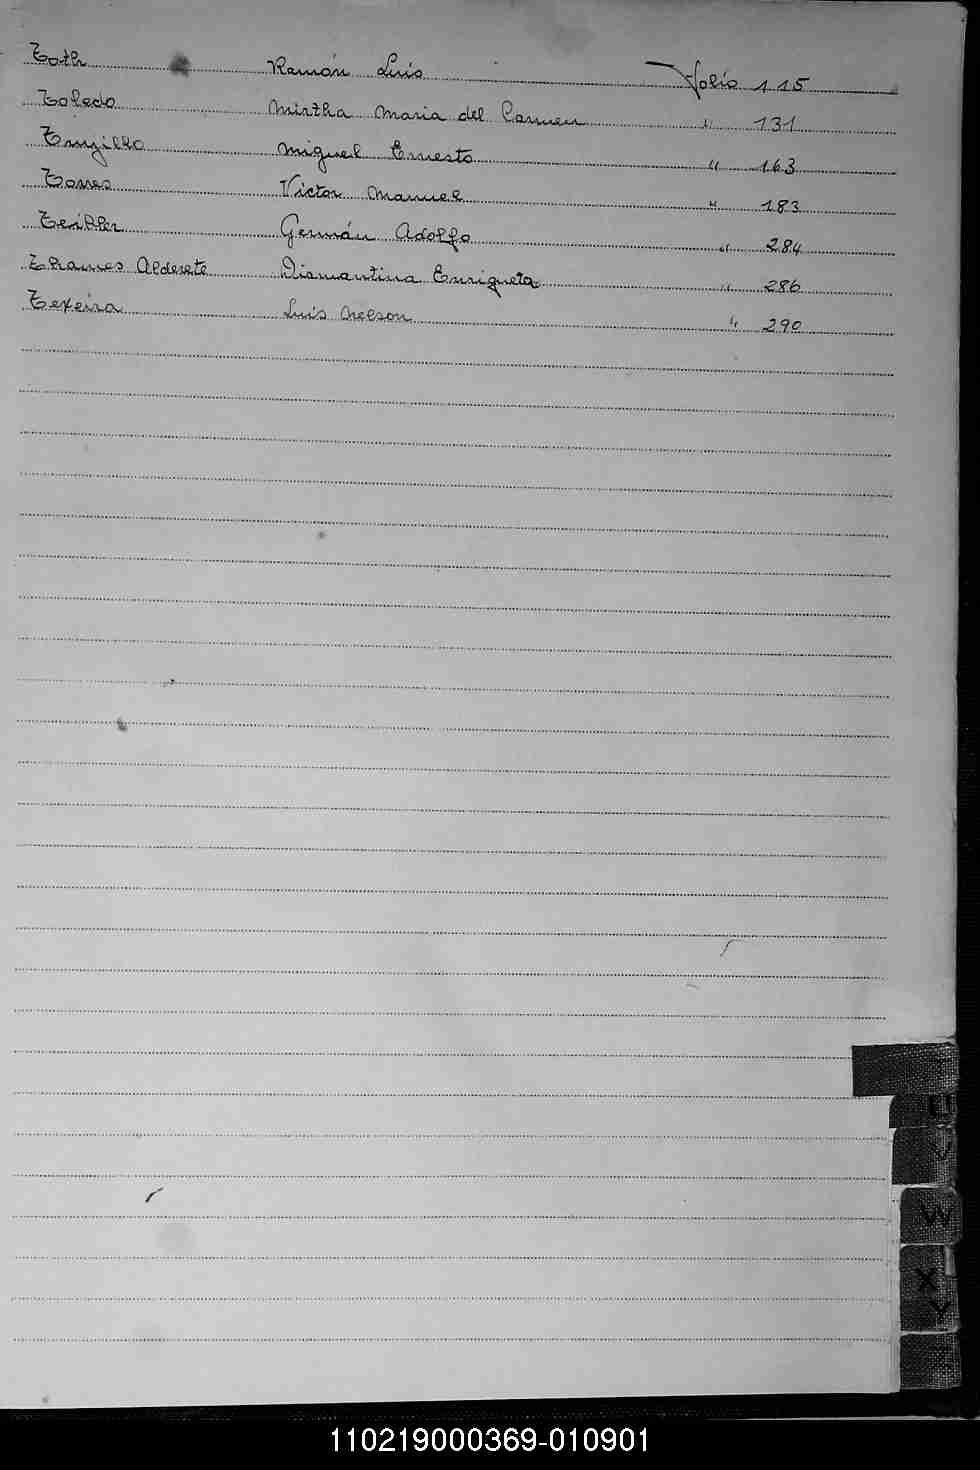 Toth Ramón Luis Folio 115
Toledo Mirtha Maria del Carmen " 131
Trujillo Miguel Ernesto " 163
Torres Victor Manuel " 183
Germán Adolfo " 284
Thames Alderete Diamantina Enriqueta " 286
Texeira Luis Nelson " 290
U
V
W
X
Y
110219000369-010901